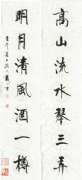 高山流水琴三弄
明月清風酒一樽